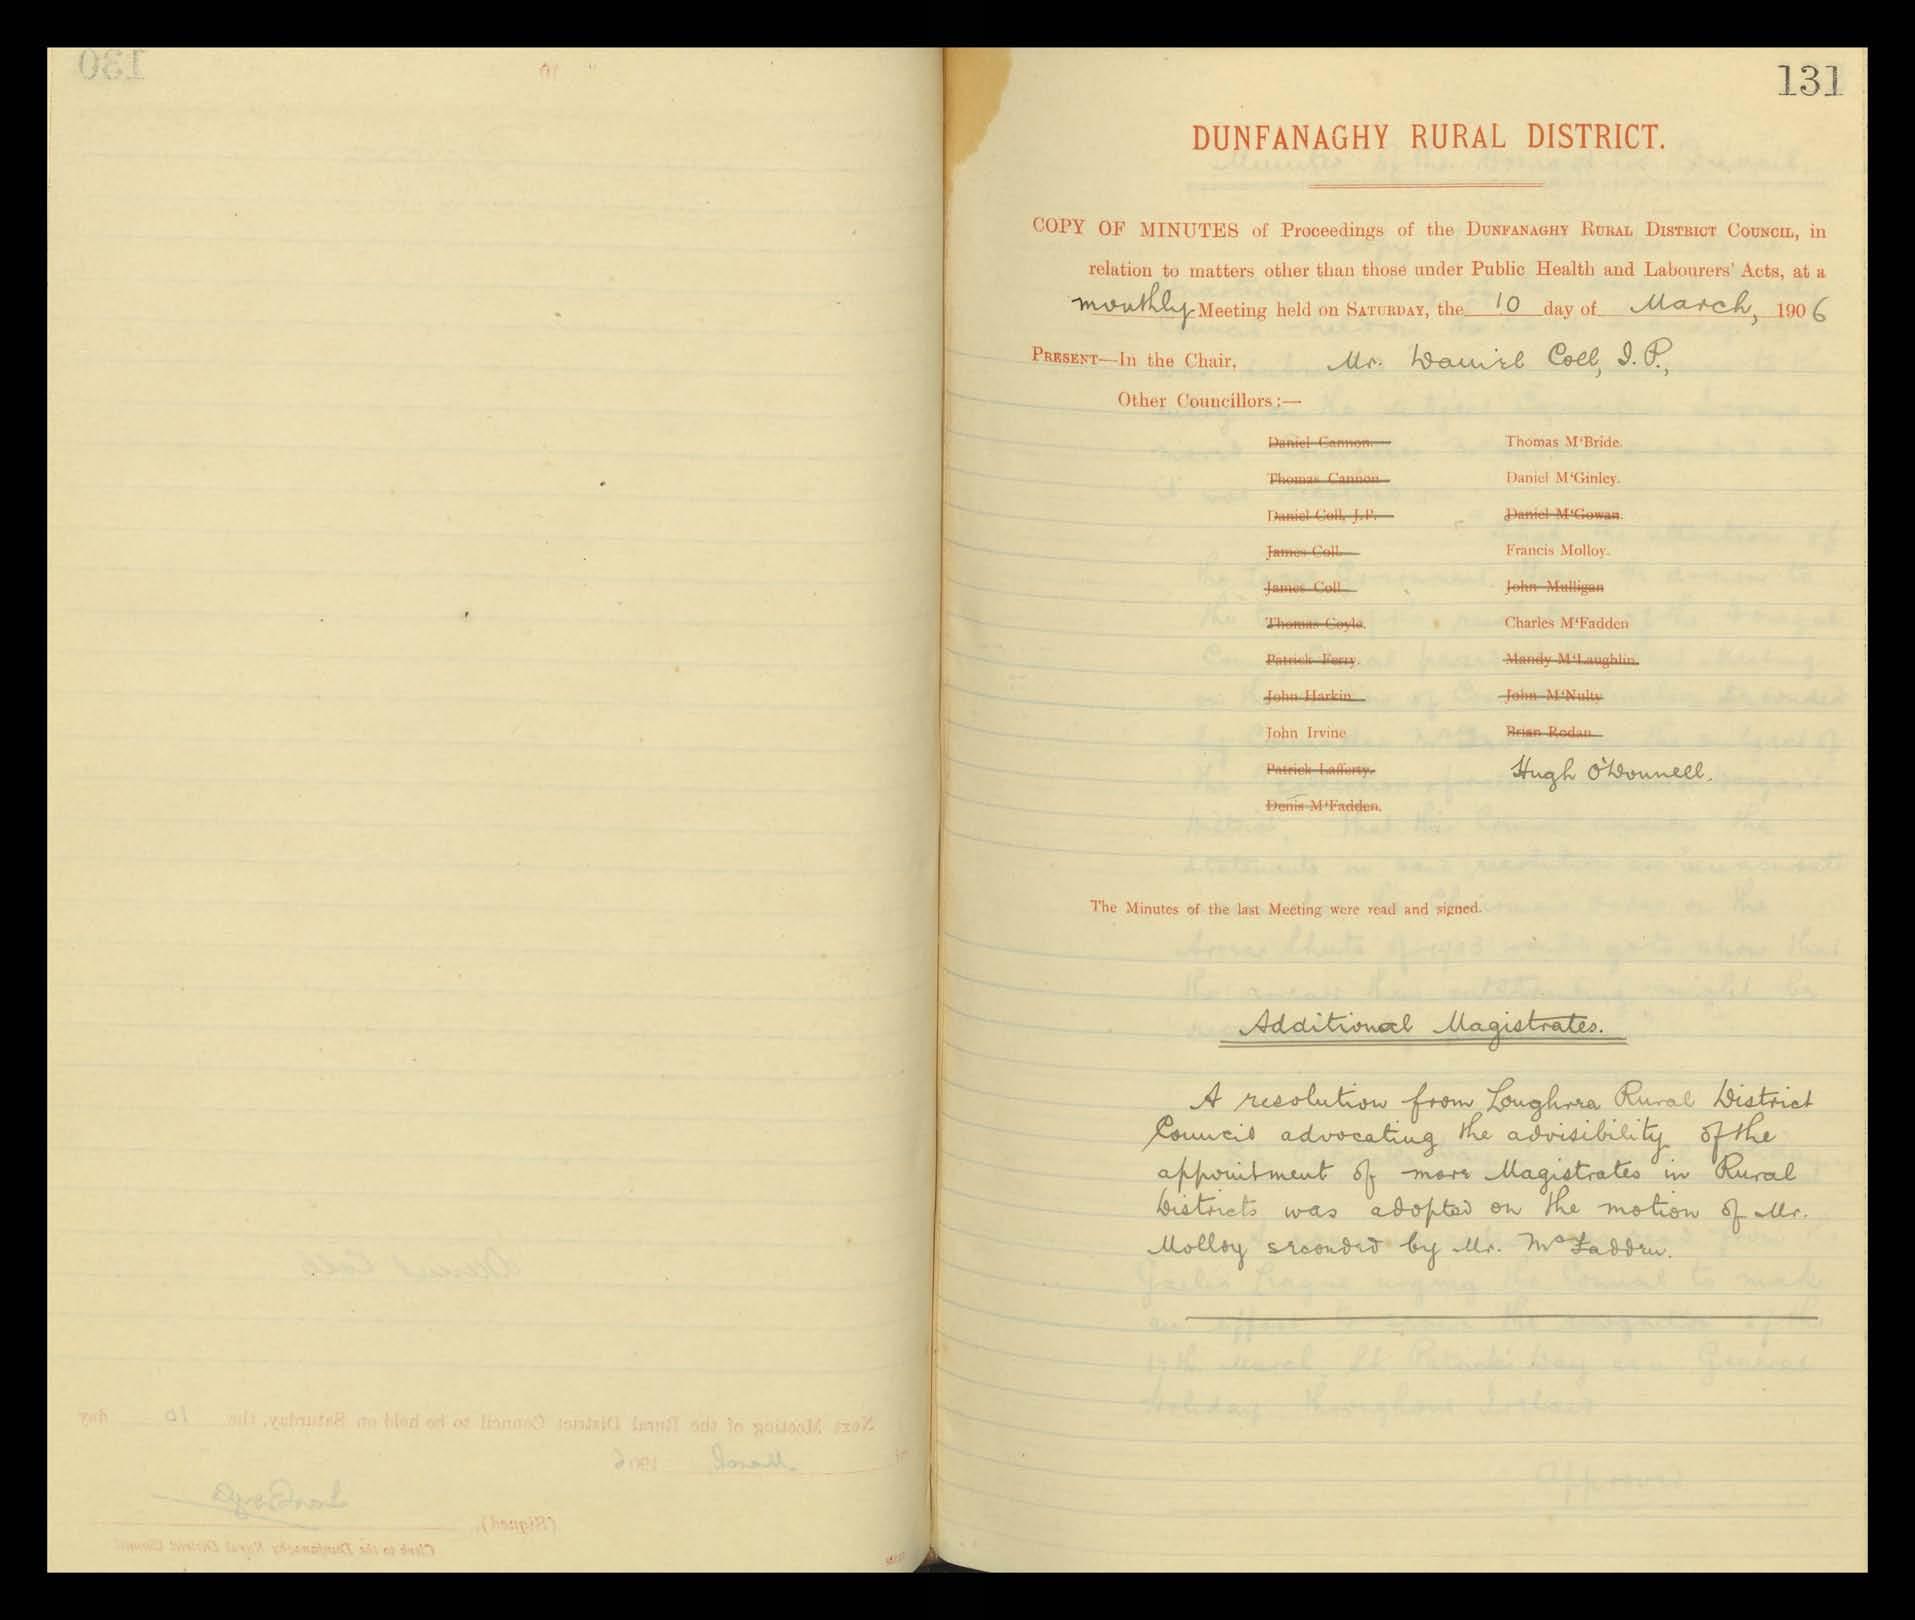 131
DUNFANAGHY RURAL DISTRICT.
COPY OF MINUTES of Proceedings of the DUNFANAGHY RURAL DISTRICT COUNCIL, in
relation to matters other than those under Public Health and Labourers' Acts, at a
monthly Meeting held on SATURDAY, the 10 day of March, 1906
PRESENT—In the Chair, Mr. Daniel Coll, J.P.,
Other Councillors:—
Daniel Cannon. Thomas M'Bride.
Thomas Cannon Daniel M'Ginley.
Daniel Coll, J.P. Daniel M'Gowan.
James Coll Francis Molloy.
James Coll John Mulligan
Thomas Coyle. Charles M'Fadden
Patrick Ferry. Mandy M'Laughlin.
John Harkin John M'Nulty
John Irvine Brian Rodan
Patrick Lafferty. Hugh O'Donnell.
Denis M'Fadden.
The Minutes of the last Meeting were read and signed.
Additional Magistrates.
A resolution from Loughrea Rural District
Council advocating the advisibility of the
appointment of more Magistrates in Rural
Districts was adopted on the motion of Mr.
Molloy seconded by Mr. McFadden.